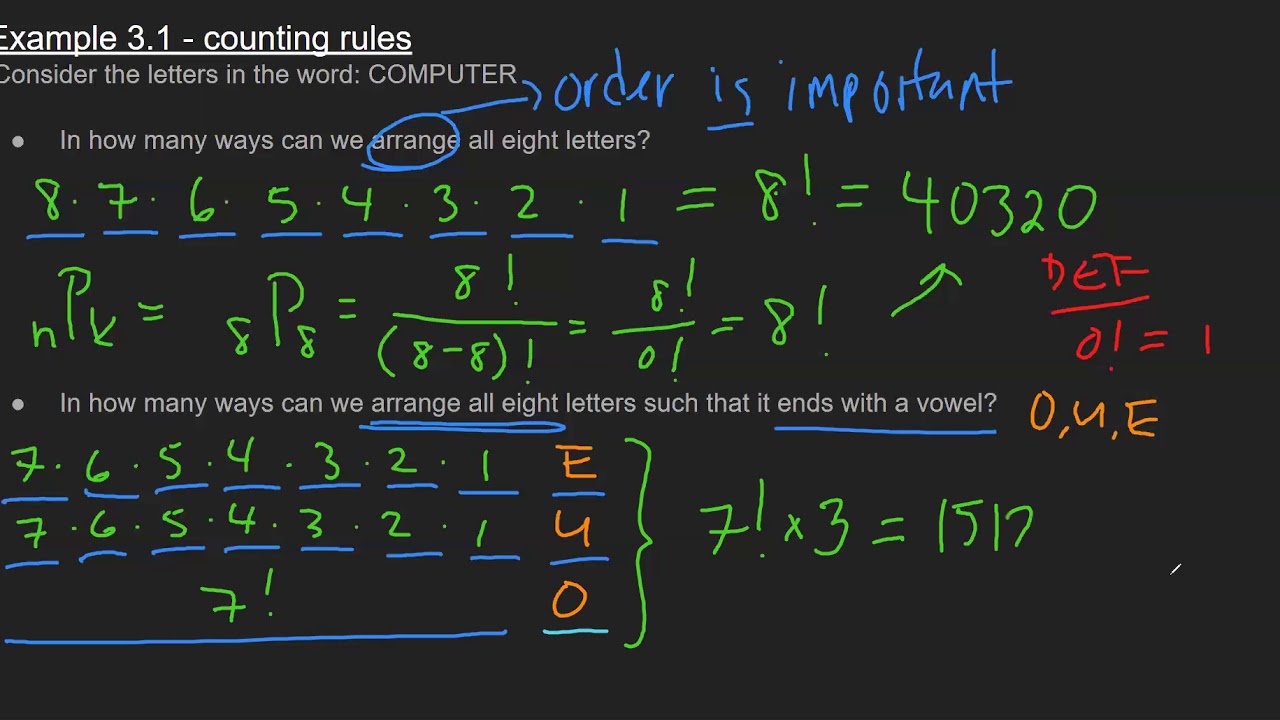 Example 3.1 - counting rules
Consider the letters in the word: COMPUTER
order is important
● In how many ways can we arrange all eight letters?
8 · 7 · 6 · 5 · 4 · 3 · 2 · 1 = 8! = 40320
nPk = 8P8 = 8!/(8-8)! = 8!/0! = 8!
DEF
0! = 1
● In how many ways can we arrange all eight letters such that it ends with a vowel?
O, U, E
7 · 6 · 5 · 4 · 3 · 2 · 1 E
7 · 6 · 5 · 4 · 3 · 2 · 1 U
7! × 3 = 1512
7! O